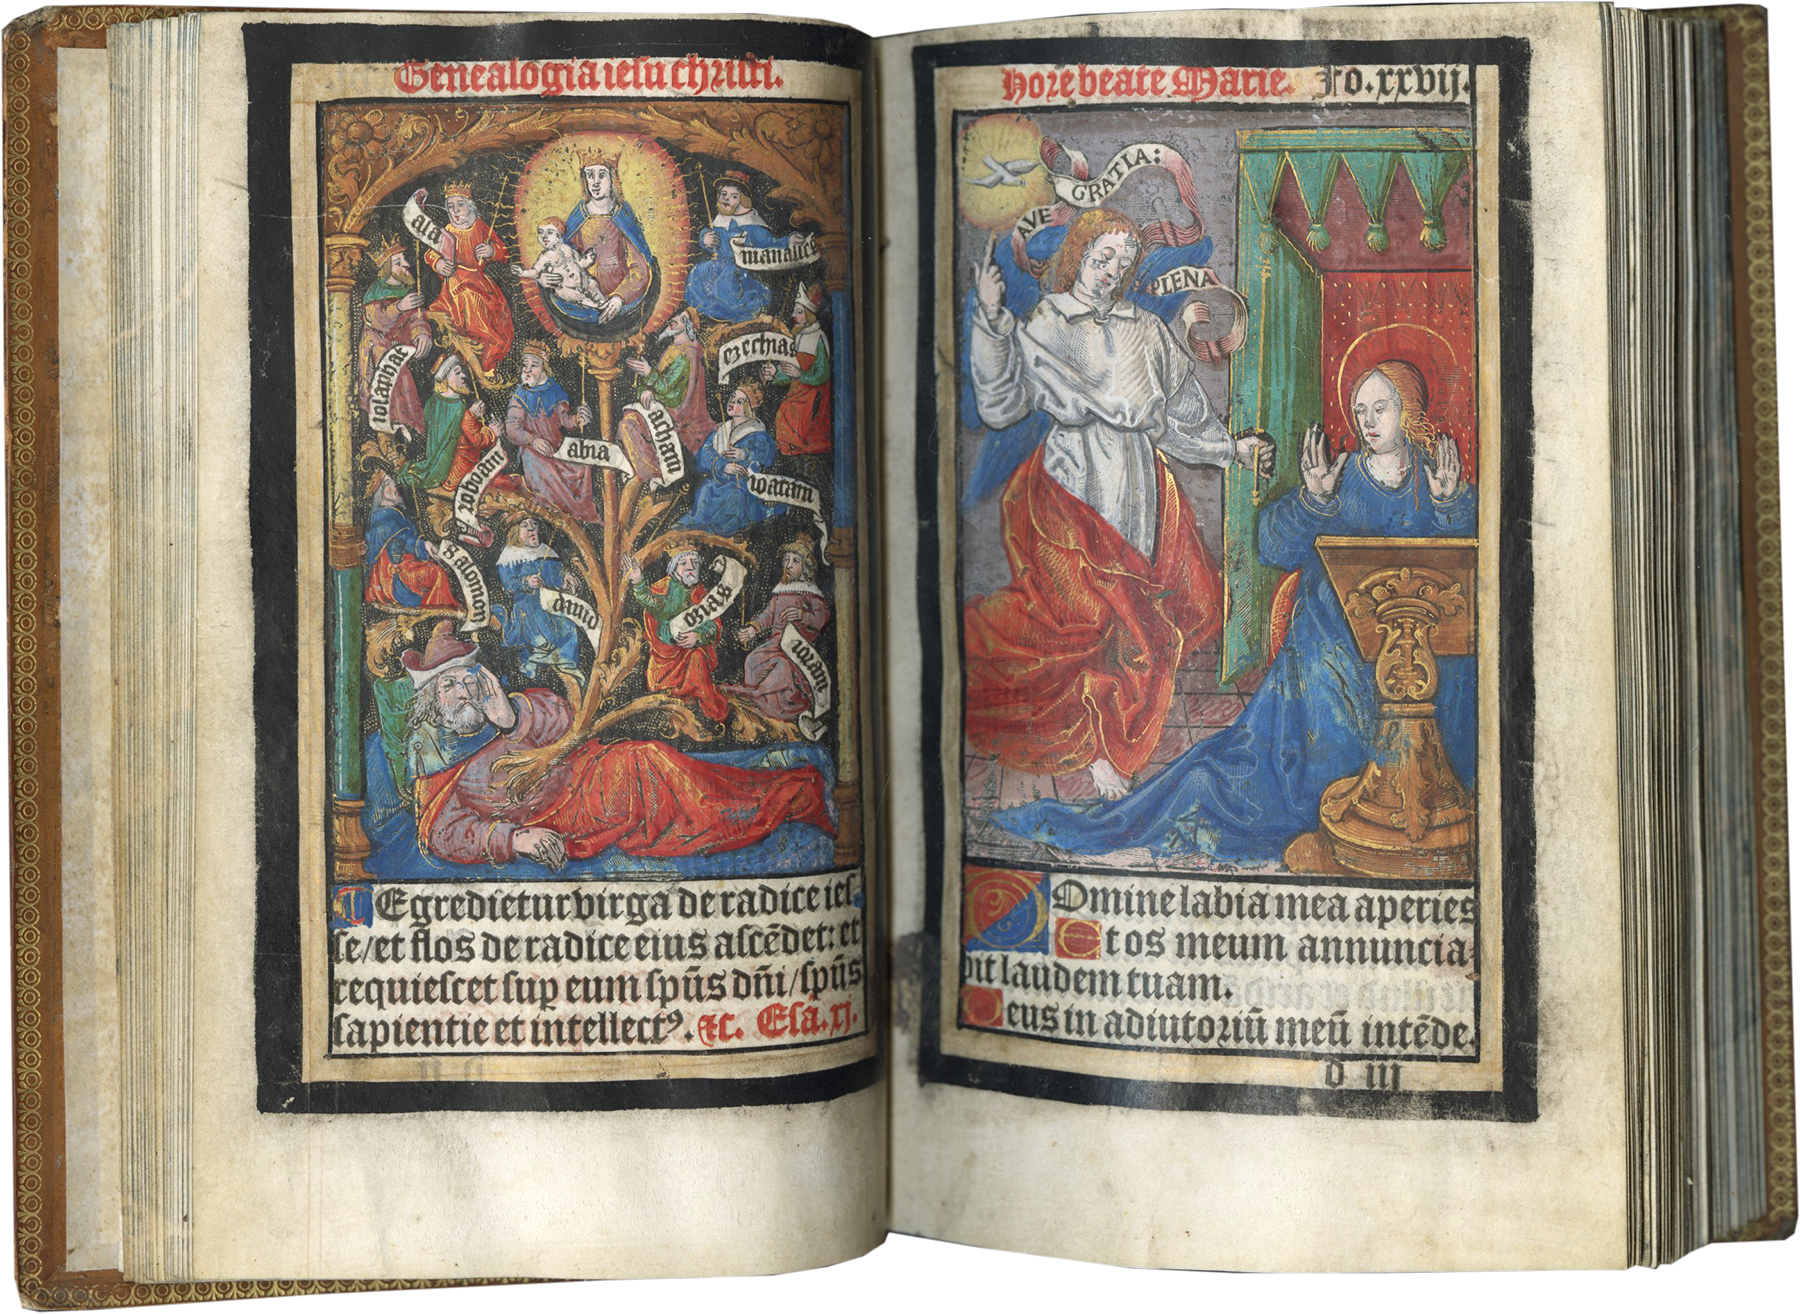 Genealogia iesu christi.
asa
manasses
iosaphat
ezechias
roboam
abia
acham
ioatam
Salomon
dauid
ozias
ioram
Egredietur virga de radice ies-
se/et flos de radice eius ascēdet: et
requiescet suꝑ eum spūs dn̄i/spūs
sapientie et intellectꝰ. ⁊c. Esa. xj.
Hore beate Marie. Fo. xxvij.
AVE GRATIA:
PLENA
Domine labia mea aperies
Et os meum annuncia-
bit laudem tuam.
Deus in adiutoriū meū intēde.
d iij